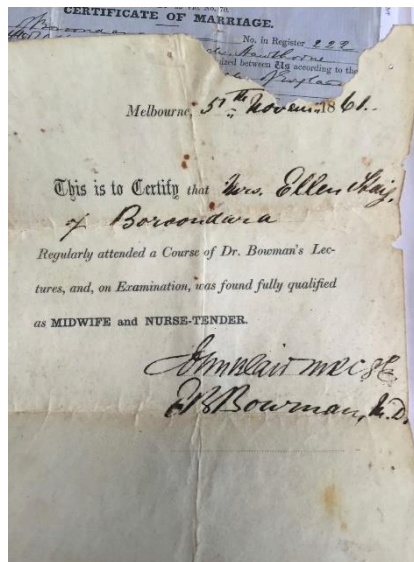 CERTIFICATE OF MARRIAGE.
No. in Register 222
Hawthorne
between Us according to the
of England
Melbourne, 5th Novem. 1861.
This is to Certify that Mrs. Ellen
of Boroondara
Regularly attended a Course of Dr. Bowman's Lec-
tures, and, on Examination, was found fully qualified
as MIDWIFE and NURSE-TENDER.
John Blair MRCSE
Bowman, M.D.